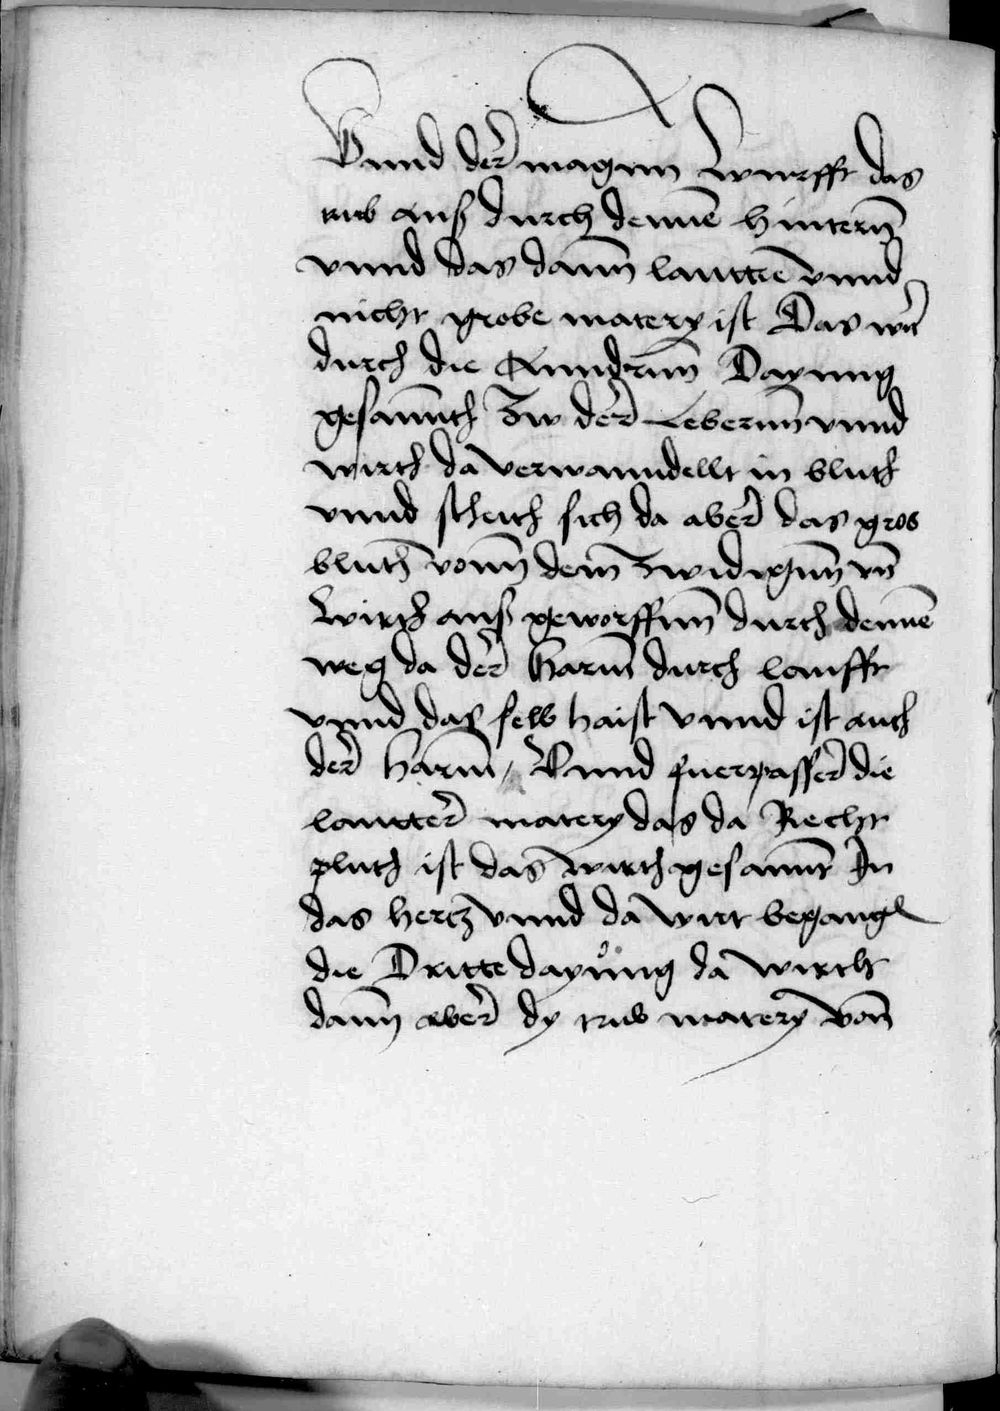 Vnnd der magnn wurfft das
trib auß durch dennē hinterñ
vnnd das dann̄ lautte vnnd
nicht grobe matery ist Das wir
durch die Anndrnn̄ Dayung
gesannth Zw der Lebernn vnnd
wirth da verwanndellt in bluth
vnnd scheith sich da aber das gros
bluth vonn dem̄ vn̄
wirth auß geworffnn̄ durch dennē
weg da der harm̄ durch laufft
vnnd das selb haist vnnd ist auch
der harm̄ / Vnnd die
lautter matery das da Recht
pluth ist das wirth gesannt In
das hertz vnnd da wirt begangn
die Dritte dayung da wirtt
dann̄ aber dy trib matery von̄